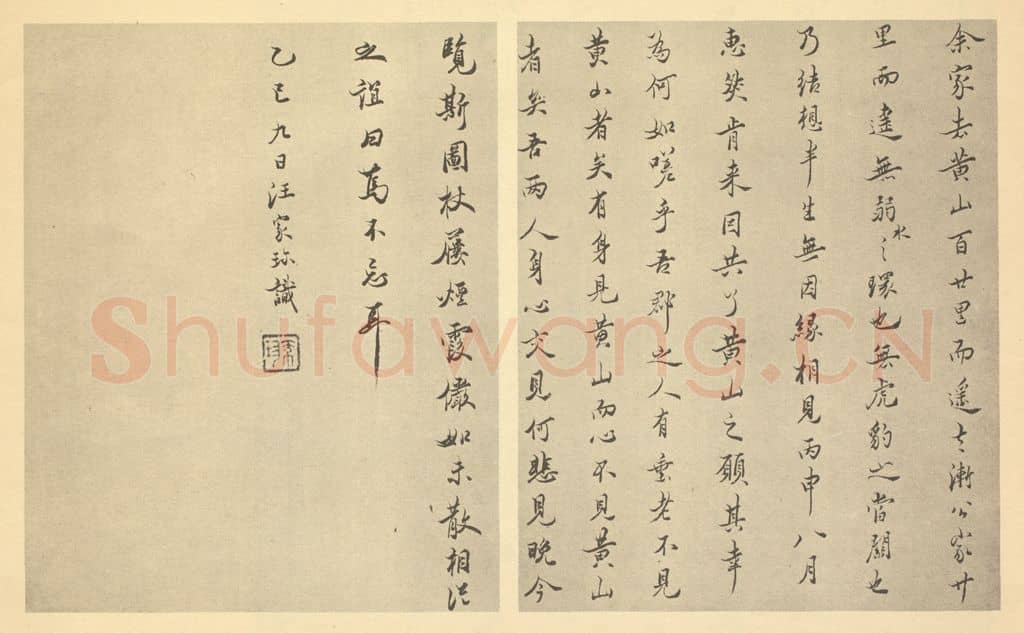 余家去黄山百廿里而遙去漸公家廿
里而達無弱水之環也無虎豹之當關也
乃結想半生無因緣相見丙申八月
惠然肯来因共了黄山之願其幸
為何如嗟乎吾郡之人有垂老不見
黄山者矣有身見黄山而心不見黄山
者矣吾兩人身心交見何悲見晚今
覽斯圖杖屨煙霞儼如未散相從
之誼曰不忘耳
乙巳九日汪家珍識
Shufawang.CN